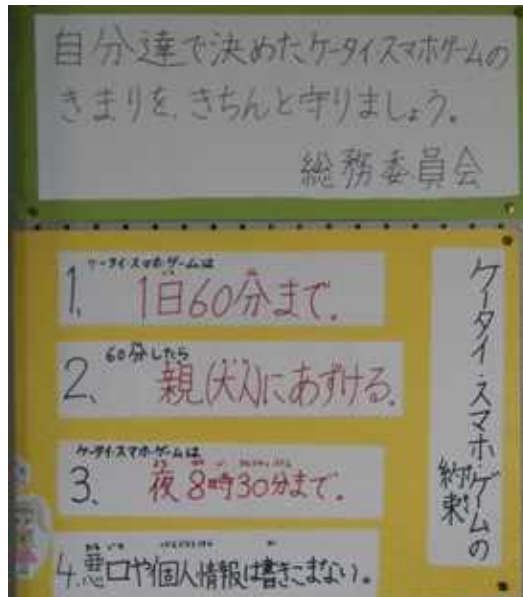 自分達で決めたケータイスマホゲームの
きまりを、きちんと守りましょう。
総務委員会
ケータイ・スマホ・ゲームの
約束
ケータイ・スマホ・ゲームは
1、 1日60分まで。
60分したら
2、 親(大人)にあずける。
ケータイ・スマホ・ゲームは
3、 夜8時30分まで。
4、悪口や個人情報は書きこまない。